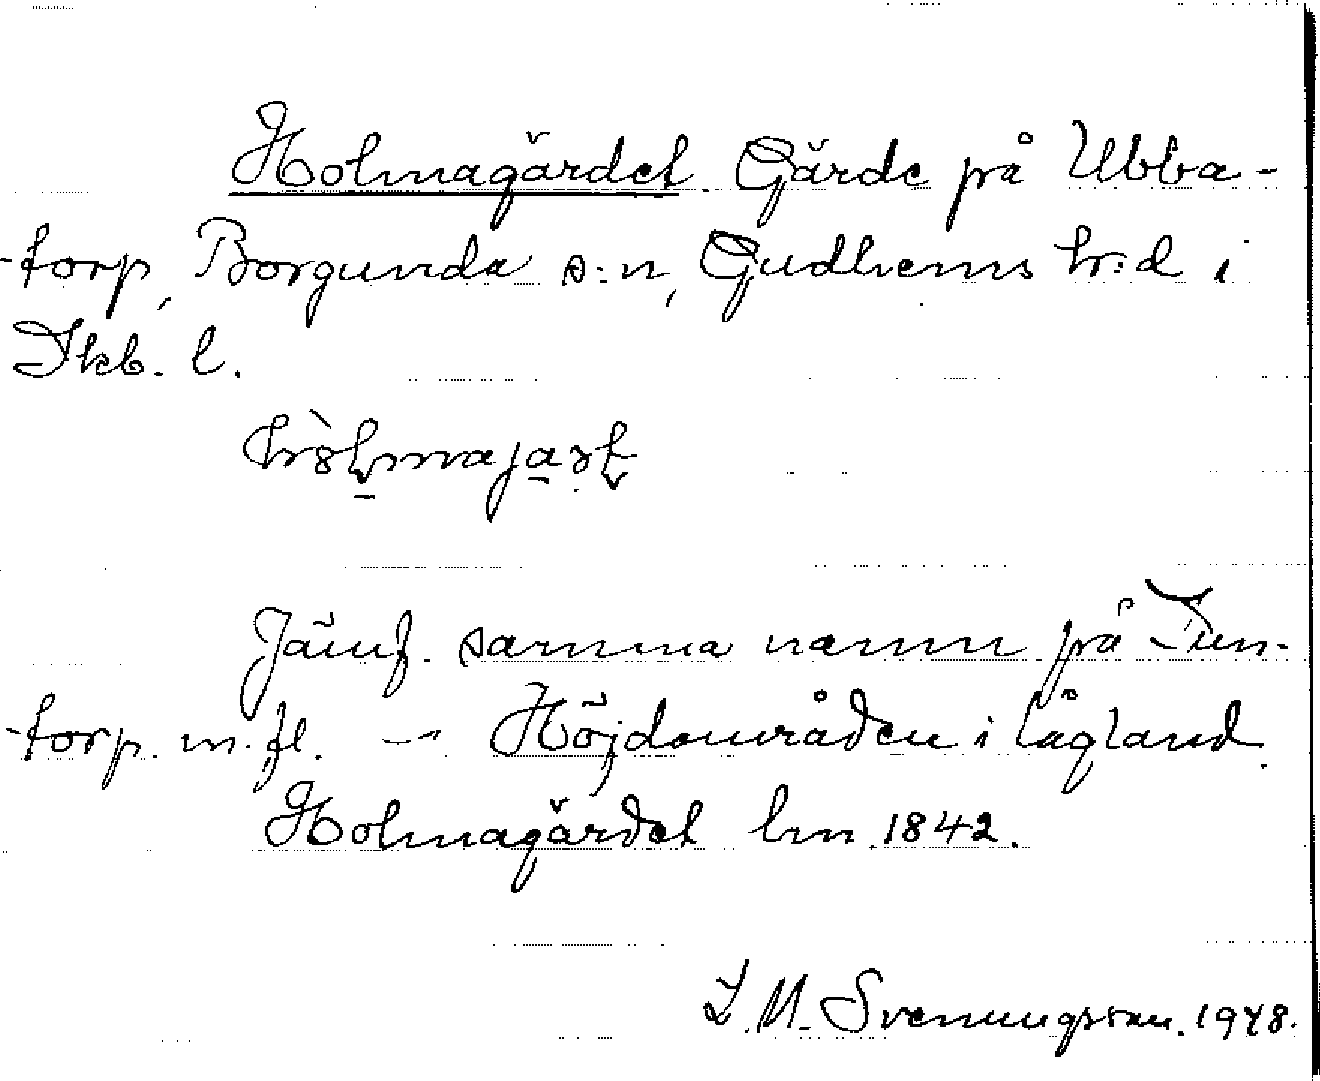 Holmagärdet. Gärde på Ubba-
-torp, Borgunda s:n, Gudhems h:d i
Skb. l.
Jämf. samma namn på Tun-
-torp. m. fl. — Höjdområden i lågland.
Holmagärdet hm 1842.
I. M. Svenungsson. 1948.